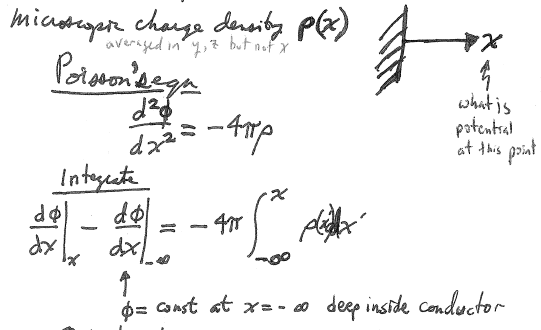 microscopic charge density ρ(x)
averaged in y, z but not x
x
what is
potential
at this point
Poisson's eqn
d²ϕ/dx² = -4πρ
Integrate
dϕ/dx|ₓ - dϕ/dx|₋∞ = -4π ∫₋∞ˣ ρ(x')dx'
ϕ = const at x = -∞ deep inside conductor